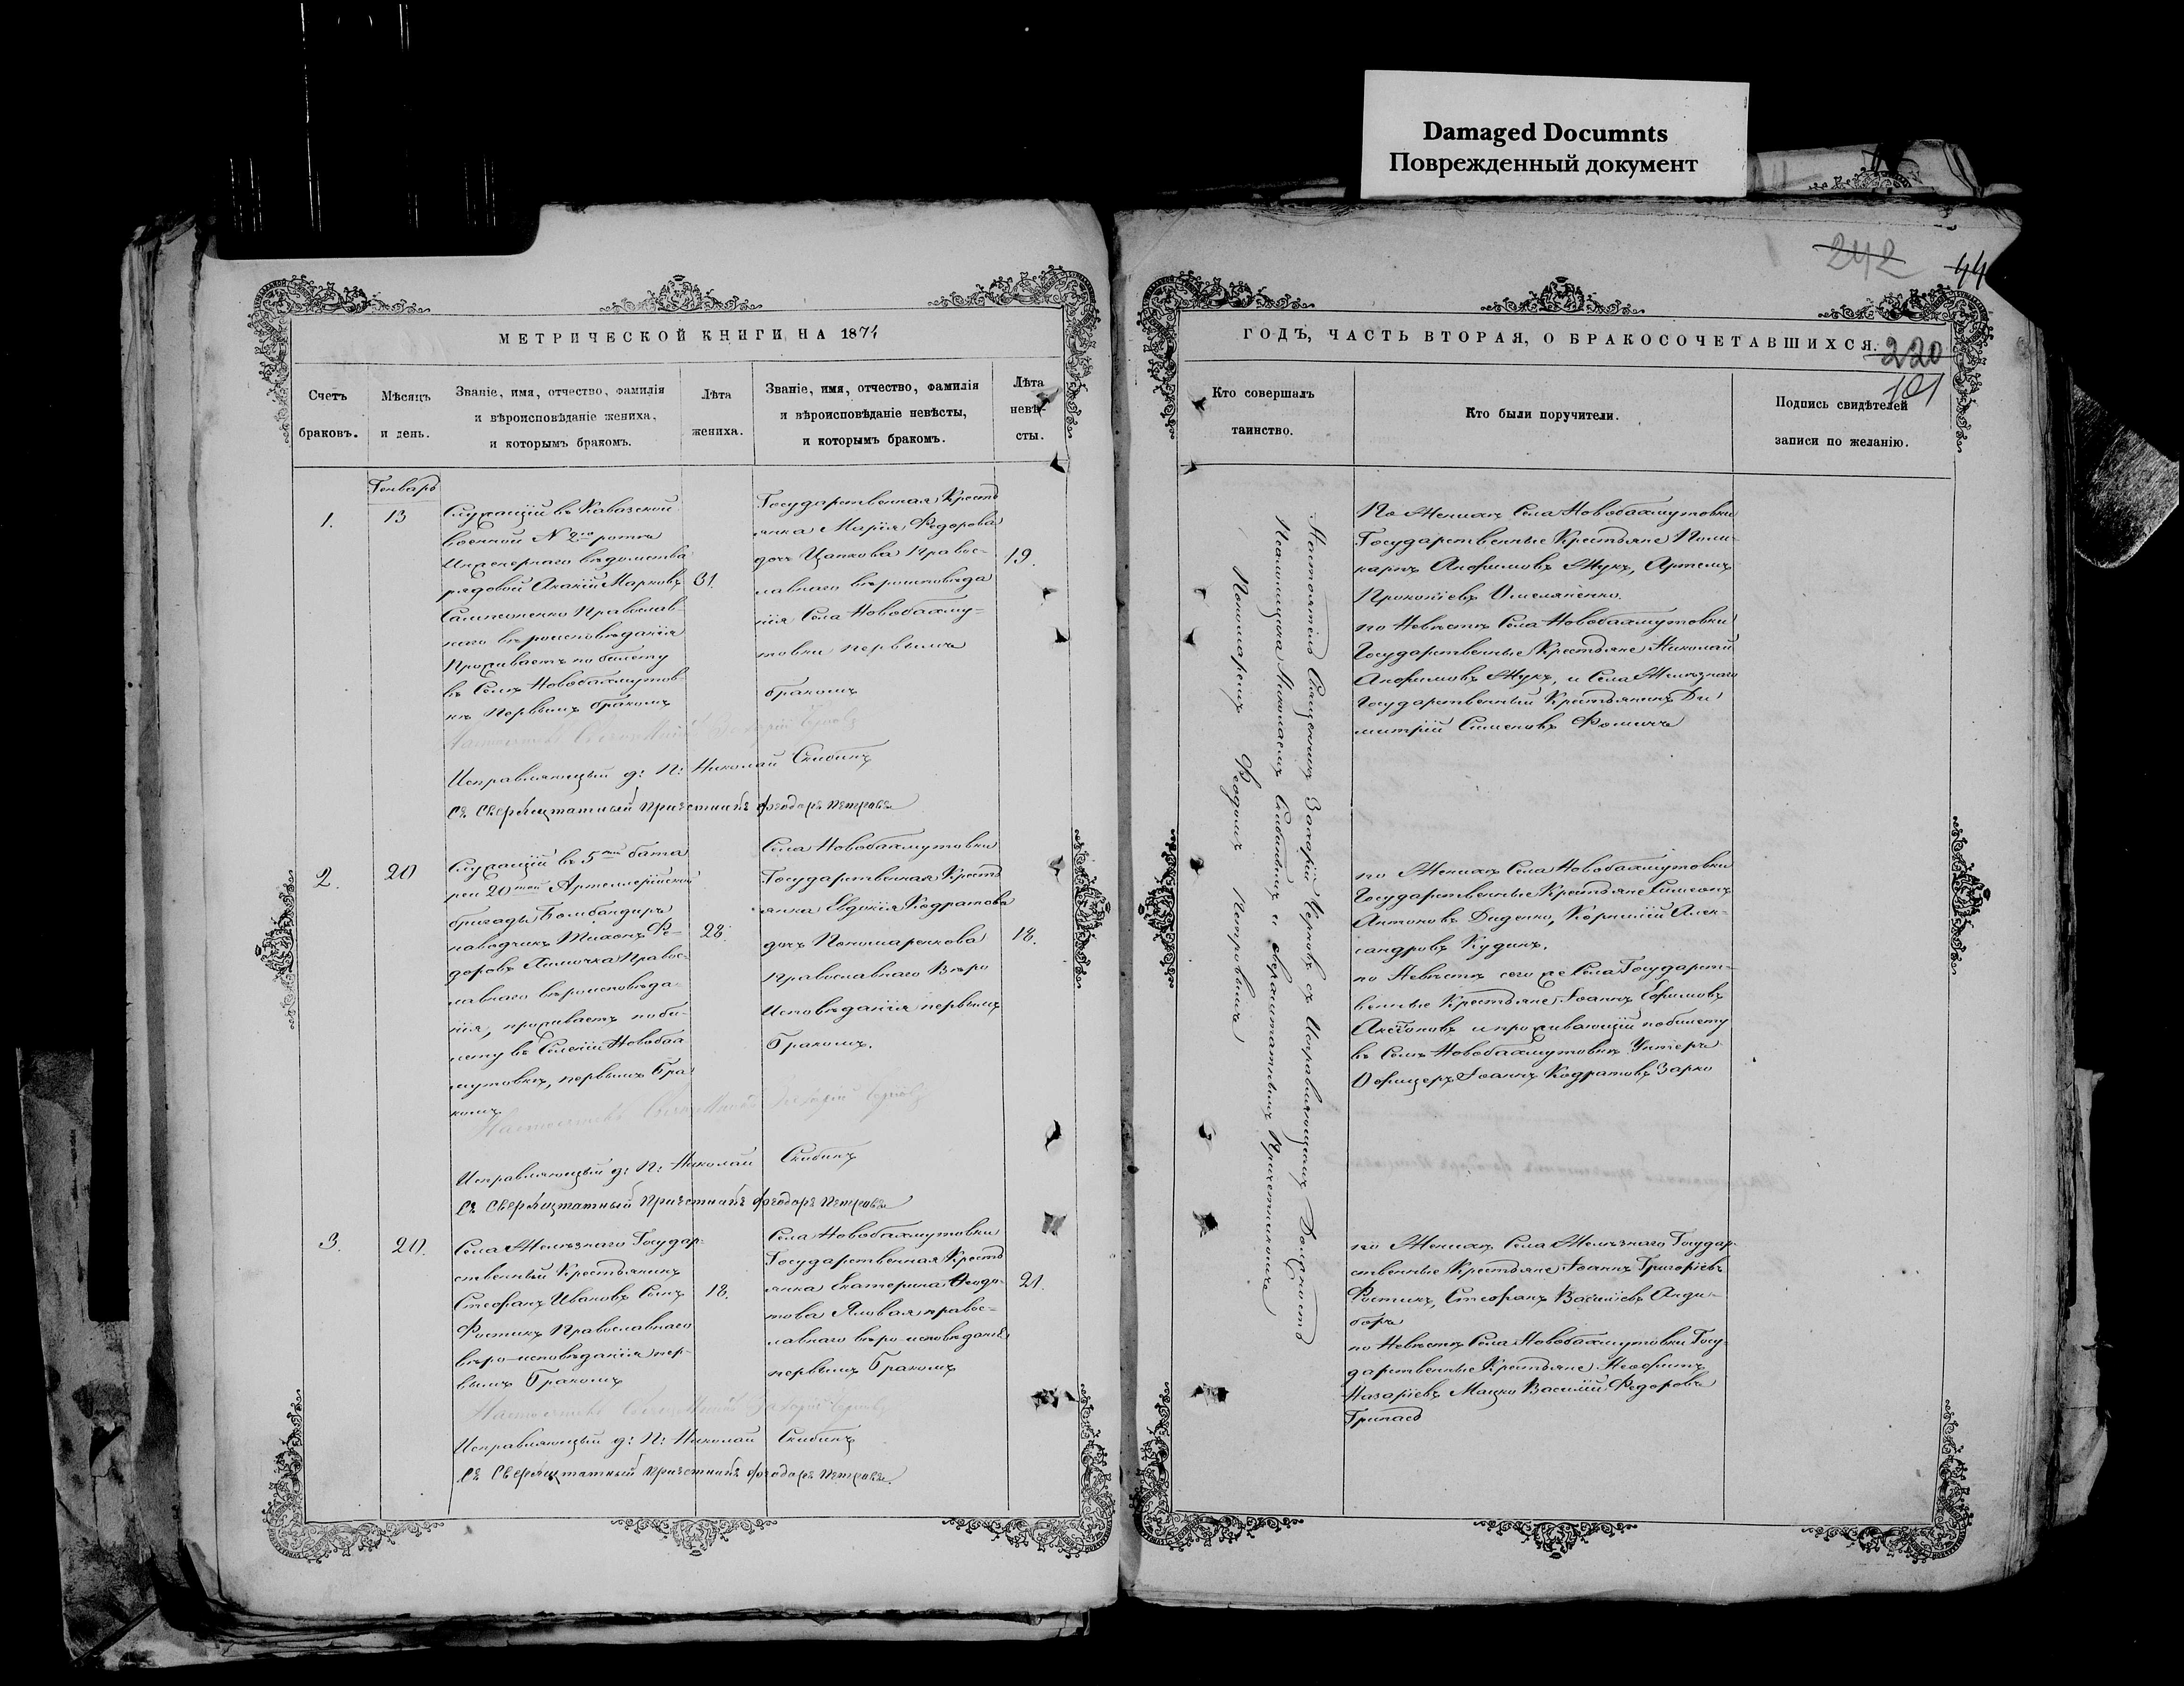 Damaged Documnts
Поврежденный документ
242
44
220
101
МЕТРИЧЕСКОЙ КНИГИ НА 1874
Счетъ
браковъ.
Мѣсяцъ
и день.
Званіе, имя, отчество, фамилія
и вѣроисповѣданіе жениха,
и которымъ бракомъ.
Лѣта
жениха.
Званіе, имя, отчество, фамилія
и вѣроисповѣданіе невѣсты,
и которымъ бракомъ.
Лѣта
невѣ-
сты.
Генварь
1.
13
Служащій въ Кавазской
военной N 2го ротѣ
Инженернаго вѣдомства
рядовой Акакій Марковъ
Самсоненко Православ-
наго вѣроисповѣданія
Проживаетъ по билету
въ Селѣ Новобахмутов-
кѣ Первымъ бракомъ
31.
Государственная Кресть
янка Марія Федорова
дочь Цапкова Правос-
лавнаго вѣроисповѣда
нія Села Новобахму-
товки первымъ
бракомъ
19.
Исправляющій д: П: Николай Скибинъ
Съ Сверхштатный Причетникъ Феодоръ Петровъ
2.
20
Служащій въ 5ой бата
реи 20той Артеллерійской
бригады Бомбандиръ
наводчикъ Тихонъ Фе-
доровъ Правос-
лавнаго вѣроисповѣда-
нія, проживаетъ по би-
лету въ Селеніи Новобах
мутовкѣ, первымъ Бра
комъ
28.
Села Новобахмутовки
Государственная Кресть
янка Евдокія Кодратова
дочь Пономаренкова
Православнаго Вѣро
Исповѣданія первымъ
Бракомъ.
18.
Исправляющій д: П: Николай Скибинъ
Съ Сверхштатный Причетникъ Феодоръ Петровъ
3.
20.
Села Желѣзнаго Государ-
ственный Крестьянинъ
Стефанъ Ивановъ Сынъ
Фостикъ Православнаго
вѣро-исповѣданія пер-
вымъ Бракомъ
18.
Села Новобахмутовки
Государственная Кресть
янка Екатерина Феодо-
това Яловая правос-
лавнаго вѣро-исповѣданія
первымъ Бракомъ
21.
Исправляющій д: П: Николай Скибинъ
Съ Сверхштатный Причетникъ Феодоръ Петровъ
ГОДЪ, ЧАСТЬ ВТОРАЯ, О БРАКОСОЧЕТАВШИХСЯ.
Кто совершалъ
таинство.
Кто были поручители.
Подпись свидѣтелей
записи по желанію.
Настоятель Священникъ Захарій Черновъ съ Исправляющимъ Должность
Псаломщика Николаемъ Скибинымъ и сверхштатнымъ Причетникомъ
Пономаремъ Феодомъ Петровымъ
По Женихѣ Села Новобахмутовки
Государственные Крестьяне Поли-
карпъ Анфимовъ Жукъ, Артемъ
Прокопіевъ Омельяненко.
по Невѣстѣ Села Новобахмутовки
Государственные Крестьяне Николай
Анфимовъ Жукъ, и Села Желѣзнаго
Государственный Крестьянинъ Ди
митрій Симеоновъ Фомичъ
по Женихѣ Села Новобахмутовки
Государственные Крестьяне Симеонъ
Антоновъ Диденко, Корнилій Алек-
сандровъ Кудинъ.
по Невѣстѣ сего же Села Государст-
венные Крестьяне Іоаннъ Ефимовъ
Аксіоновъ и проживающій по билету
въ Селѣ Новобахмутовкѣ Унтеръ
Офицеръ Іоаннъ Кодратовъ Зарко
по Женихѣ Села Желѣзнаго Государ-
ственные Крестьяне Іоаннъ Григоріевъ
Фостикъ, Стефанъ Василіевъ
по Невѣстѣ Села Новобахмутовки Госу-
дарственные Крестьяне Неофитъ
Назаріевъ Мацко Василій Федоровъ
Грипась